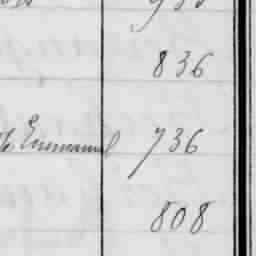 836
Emmanuel 736
808